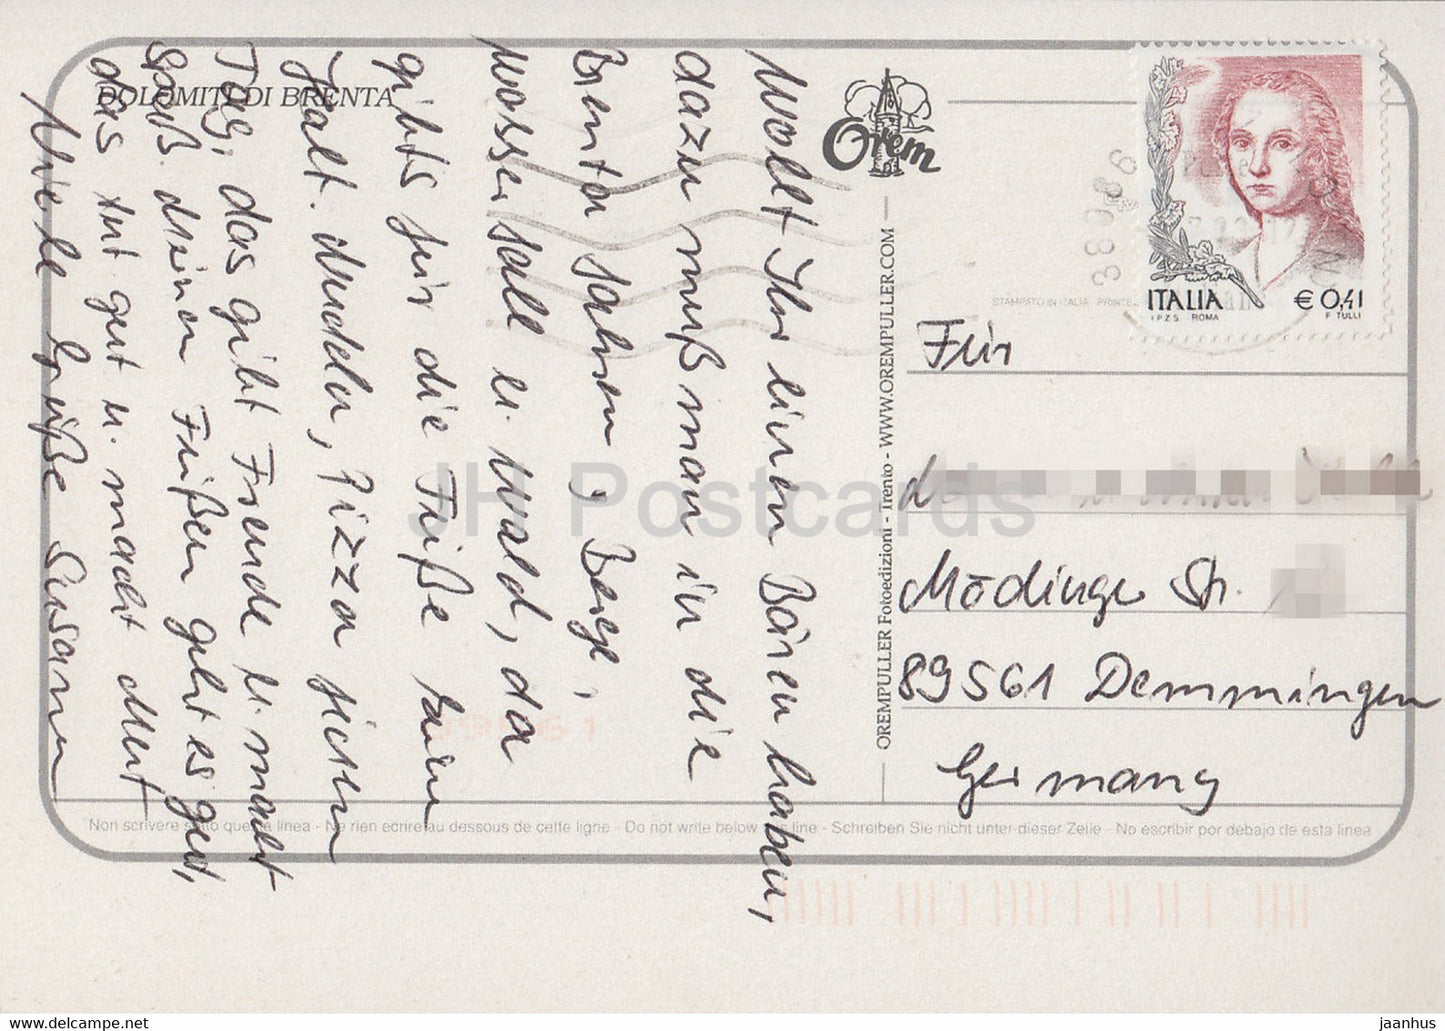 DOLOMITI DI BRENTA
Wollt Ihr einen Bären haben,
dazu muß man in die
Brenta fahren, Berge,
Wasserfall u. Wald, da
gibts für die Füße kein
Halt. Nudeln, Pizza jeden
Tag, das gibt Freude u. macht
Spaß. Meinen Füßen geht es gut,
das tut gut u. macht Mut
Viele Grüße Susann
Orem
OREMPULLER Fotoedizioni - Trento - WWW.OREMPULLER.COM
STAMPATO IN ITALIA
38086
ITALIA € 0,41
I.P.Z.S. ROMA F. TULLI
Für
Mödinger Str.
89561 Demmingen
Germany
89561
Non scrivere sotto questa linea - Ne rien ecrire au dessous de cette ligne - Do not write below this line - Schreiben Sie nicht unter dieser Zeile - No escribir por debajo de esta linea
JH Postcards
hippostcard.com
jaanhus